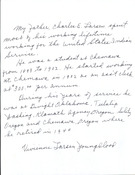 My father, Charles E. Larsen spent
most of his working lifetime
working for the United States Indian
Service.
He was a student at Chemawa
from 1893 to 1902. He started working
at Chemawa, in 1902 as an
at $ per annum.
During his years of service he
was at Enright Oklahoma, Tulalip
Klamath Agency, Oregon
Oregon and Chemawa, Oregon where
he retired in 1940
Vivienne Larsen Youngblood